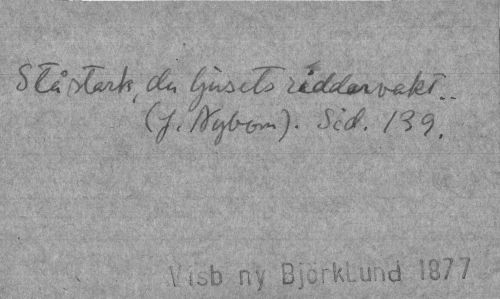 Stå stark, du ljusets riddarvakt..
(J. Nybom). Sid. 139.
Visb ny Björklund 1877